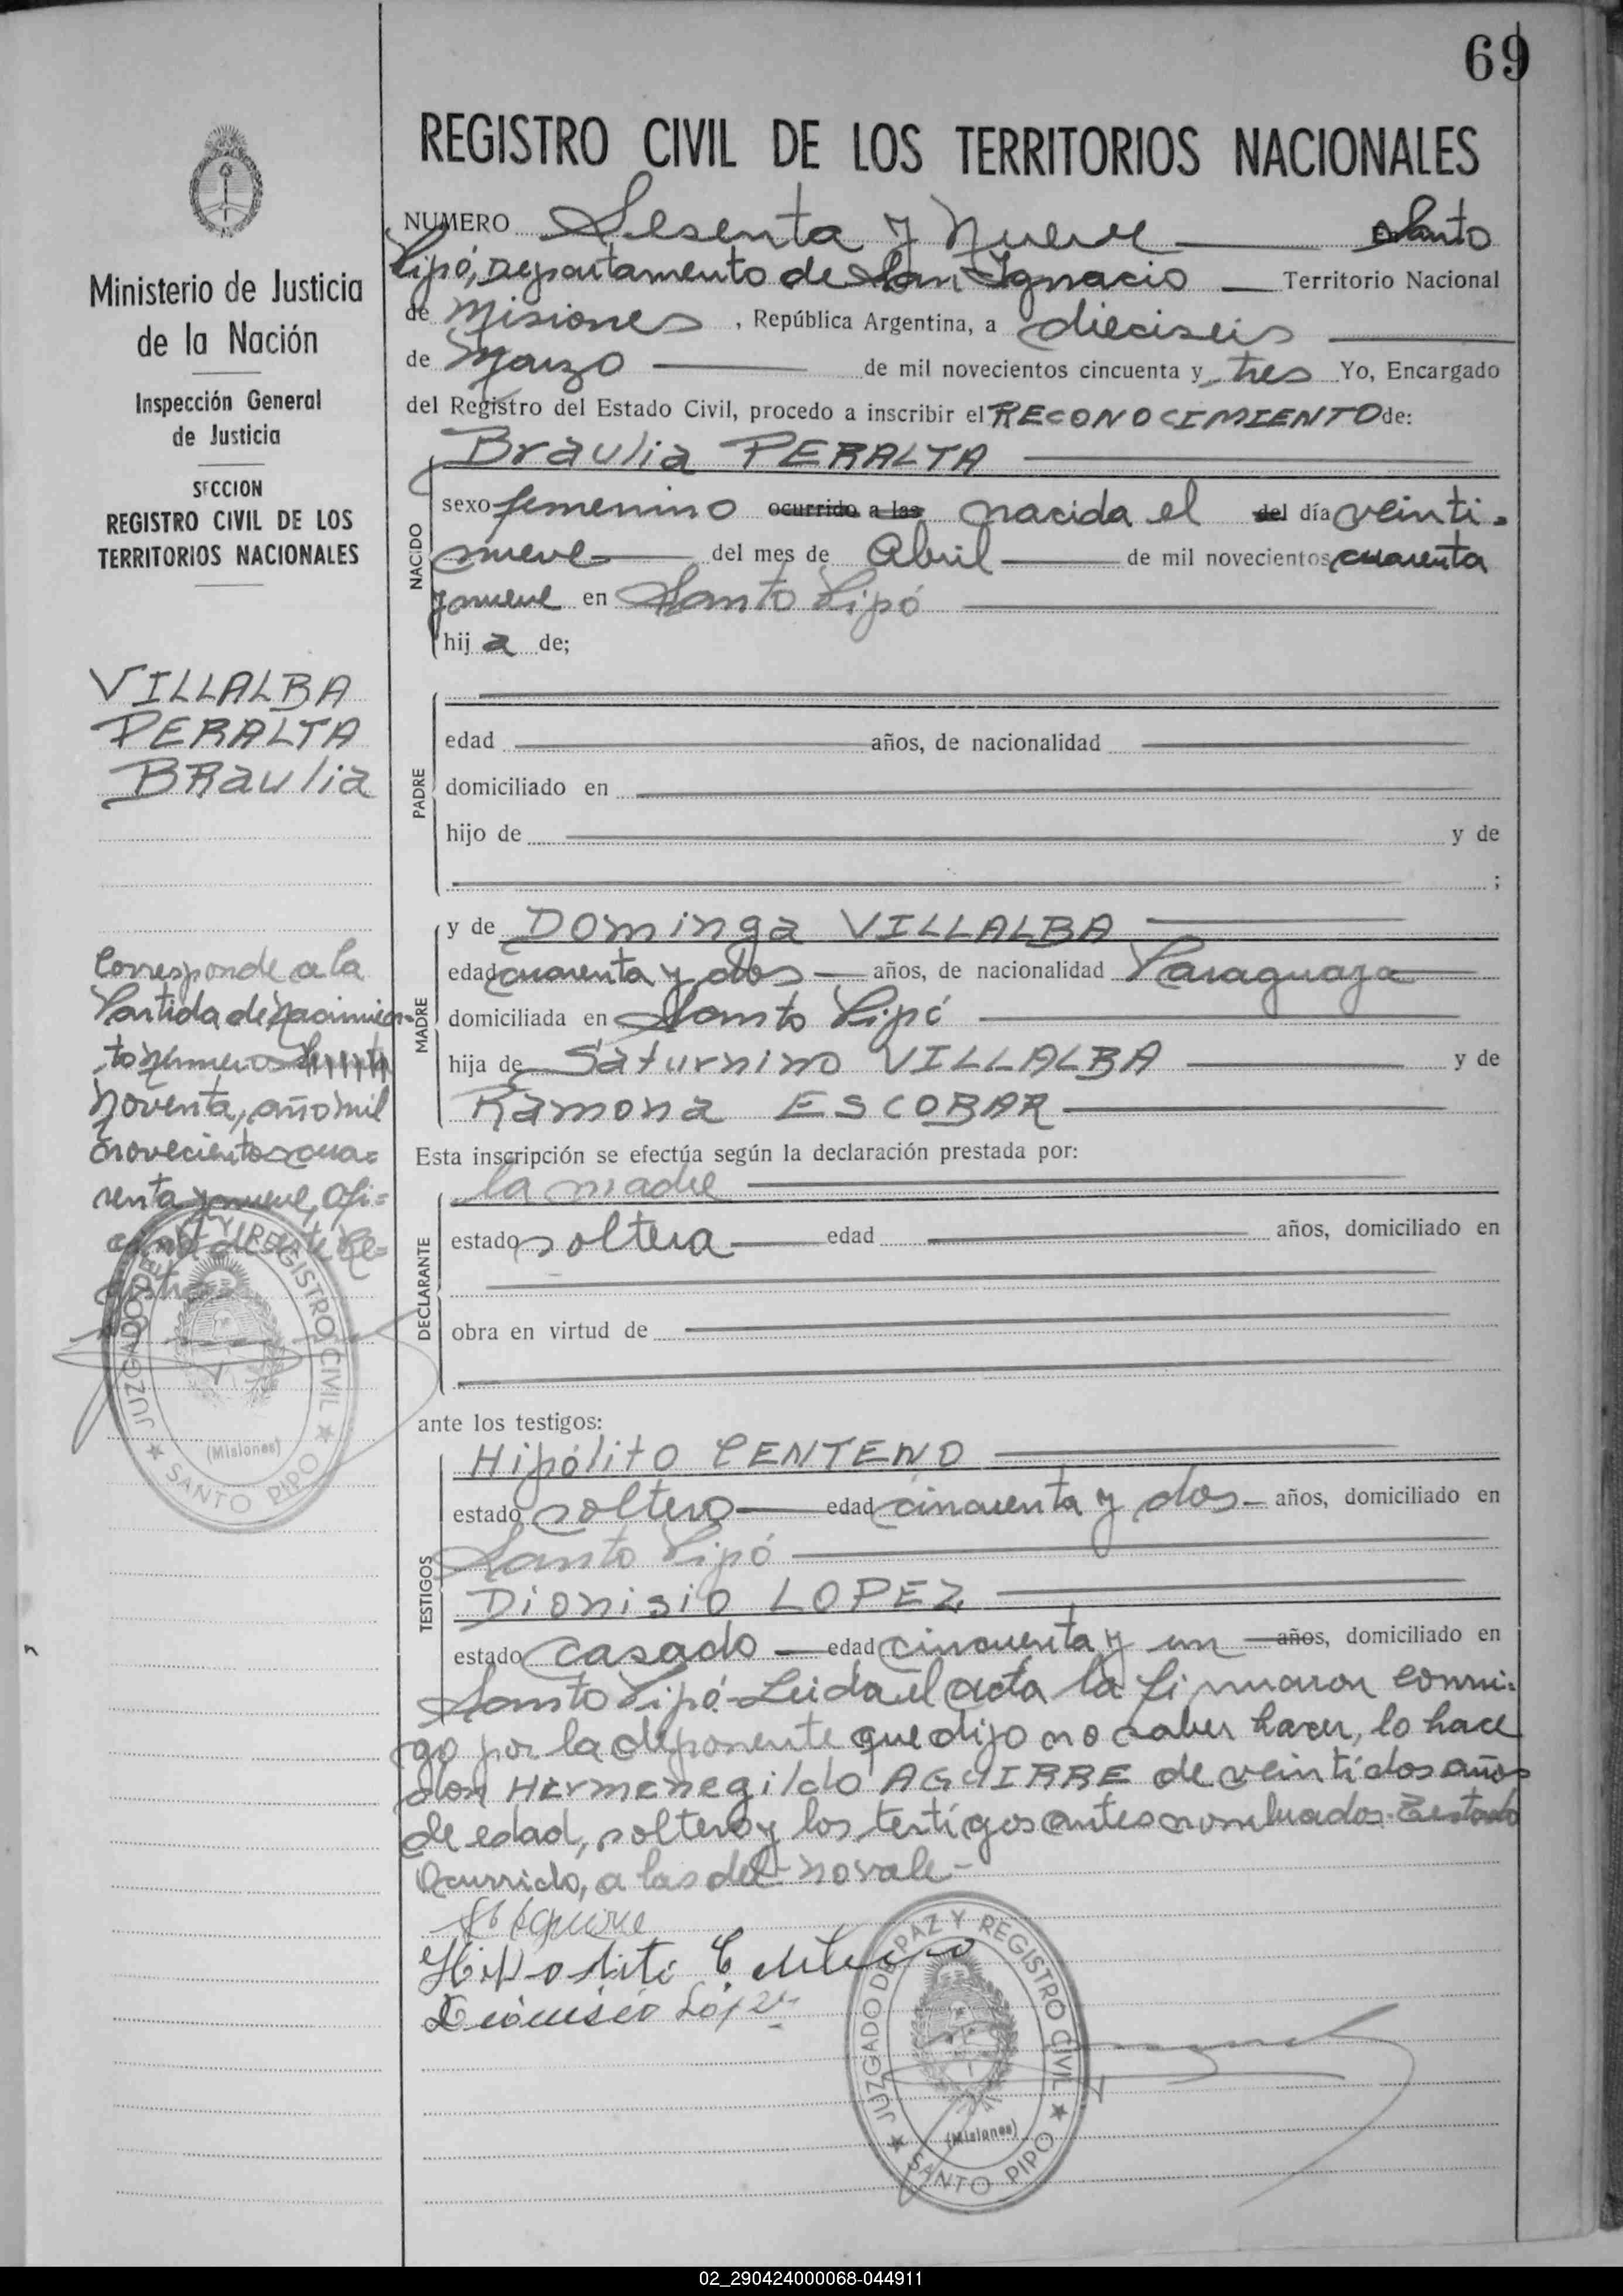 69
REGISTRO CIVIL DE LOS TERRITORIOS NACIONALES
Ministerio de Justicia
de la Nación
Inspección General
de Justicia
SECCION
REGISTRO CIVIL DE LOS
TERRITORIOS NACIONALES
VILLALBA
PERALTA
BRaulia
Corresponde a la
Partida de Nacimien-
to Número
Noventa, año mil
novecientos cua=
renta y nueve, Ofi=
de este Re=
gistro
JUZGADO DE PAZ Y REGISTRO CIVIL
(Misiones)
SANTO PIPO
NUMERO Sesenta y Nueve Santo
Pipó, Departamento de San Ignacio Territorio Nacional
de Misiones, República Argentina, a dieciseis
de Marzo de mil novecientos cincuenta y tres Yo, Encargado
del Registro del Estado Civil, procedo a inscribir el RECONOCIMIENTO de:
Braulia PERALTA
NACIDO
sexo femenino ocurrido a las nacida el del día veinti-
nueve del mes de Abril de mil novecientos cuarenta
y nueve en Santo Pipó
hija de;
PADRE
edad años, de nacionalidad
domiciliado en
hijo de y de
;
MADRE
y de Dominga VILLALBA
edad cuarenta y dos años, de nacionalidad Paraguaya
domiciliada en Santo Pipó
hija de Saturnino VILLALBA y de
Ramona ESCOBAR
Esta inscripción se efectúa según la declaración prestada por:
DECLARANTE
la madre
estado soltera edad años, domiciliado en
obra en virtud de
ante los testigos:
TESTIGOS
Hipólito CENTENO
estado soltero edad cincuenta y dos años, domiciliado en
Santo Pipó
Dionisio LOPEZ
estado casado edad cincuenta y un años, domiciliado en
Santo Pipó. Leida el acta la firmaron conmi-
go por la deponente que dijo no saber hacer, lo hace
don Hermenegildo AGUIRRE de veintidos años
de edad, soltero y los testigos antes nombrados. Testado
Ocurrido, a las del- no vale-
Aguirre
Hipolito Centeno
Dionisio López
JUZGADO DE PAZ Y REGISTRO CIVIL
(Misiones)
SANTO PIPO
02_290424000068-044911